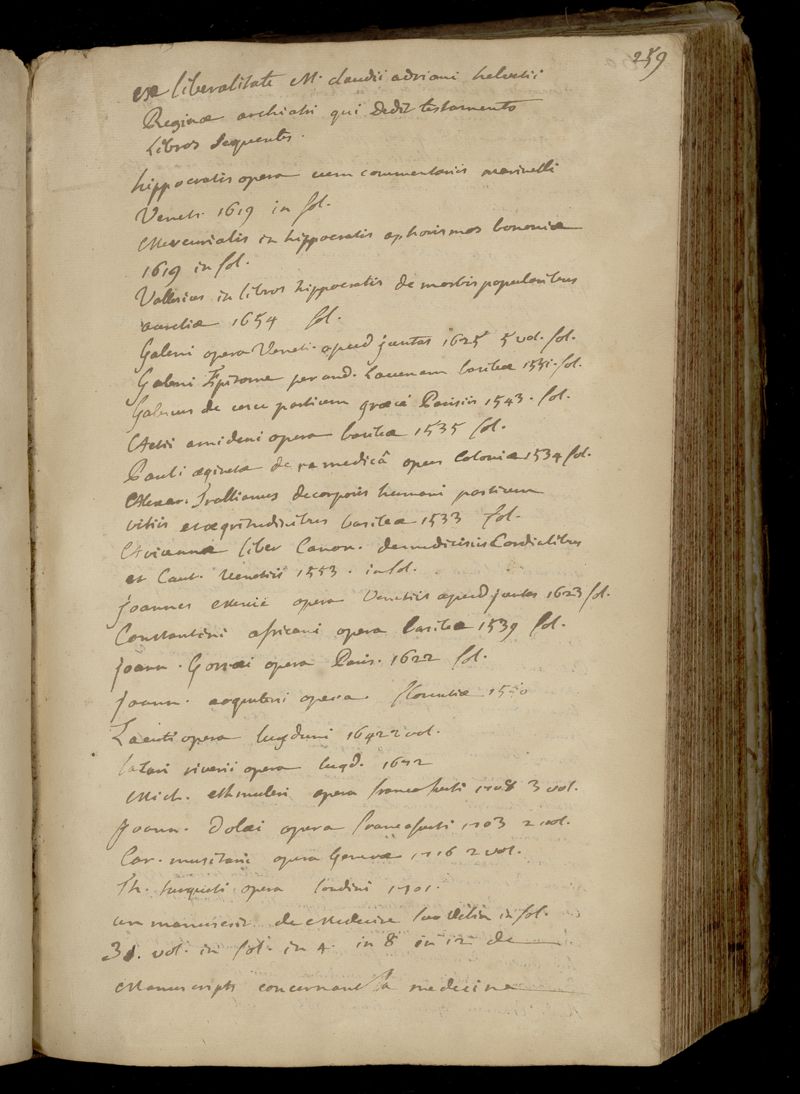 259
ex liberalitate M. claudii adriani helvetii
Reginæ archiatri qui dedit testamento
Libros sequentes.
hippocratis opera cum commentariis marinelli
Veneti. 1619 in fol.
Mercurialis in hippocratis aphorismos bononiæ
1619 in fol.
Vallesius in libros hippocratis de morbis popularibus
aureliæ 1654 fol.
Galeni opera Veneti. apud juntas 1625 5 vol. fol.
Galeni Epitome per and. Lacunam basileæ 1551. fol.
Galenus de usu partium græcè Parisiis 1543. fol.
Aetii amideni opera basileæ 1535 fol.
Pauli æginetæ de re medicâ opus Coloniæ 1534 fol.
Alexan. Trallianus de corporis humani partium
vitiis et ægritudinibus basileæ 1533 fol.
Avicennæ liber Canon. de medicinis Cordialibus
et Cant. Venetiis 1553. in fol.
Joannes Mesuæ opera Venetiis apud juntas 1623 fol.
Constantini africani opera basileæ 1539 fol.
Joann. Gorræi opera Paris. 1622 fol.
Joann. opera. florentiæ
Zacuti opera lugduni 1642 2 vol.
lazari riverii opera lugd.
Mich. Ethmuleri opera francofurti 1708 3 vol.
Joann. Dolæi opera francofurti 1703 2 vol.
Car. musitani opera Genevæ 1716 2 vol.
Th. turqueti opera londini 1701.
un manuscrit de Medecine in fol.
31. vol. in fol. in 4. in 8 in 12 de
Manuscripts concernant la medecine